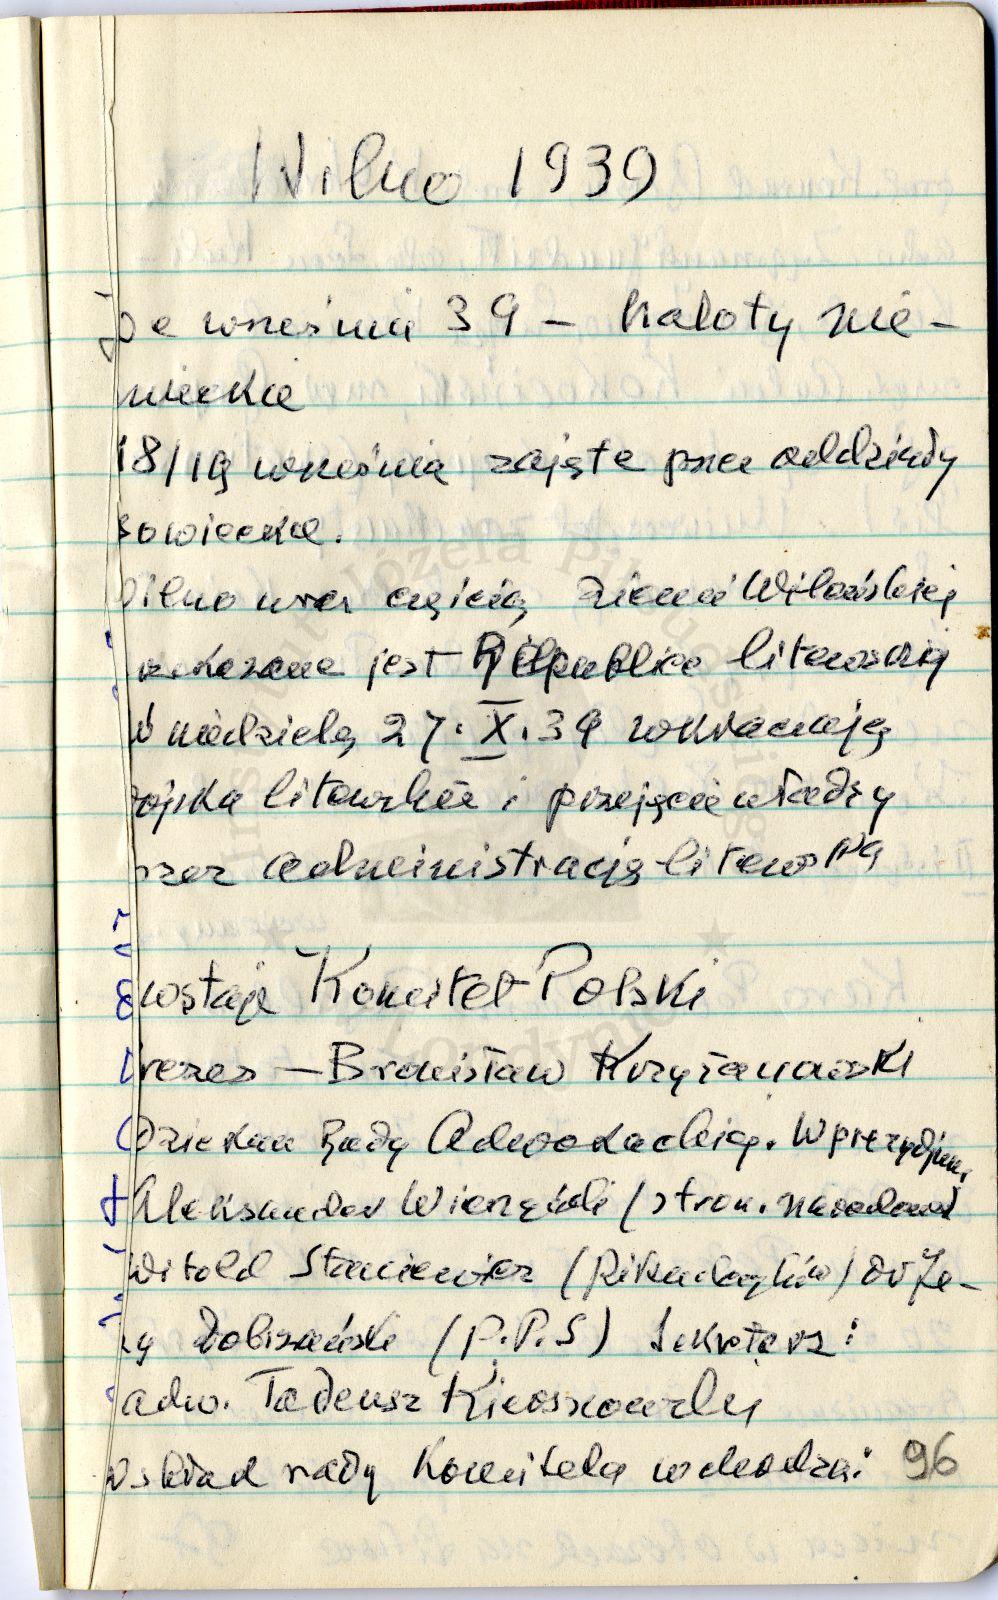 Wilno 1939
września 39 – naloty nie-
mieckie
18/19 września zajęte przez oddziały
sowieckie.
Wilno wraz częścią Ziemi Wileńskiej
przekazane jest Republice litewskiej
W niedzielę 27.X.39 wkraczają
wojska litewskie i przejęcie władzy
przez administrację litewską
Powstaje Komitet Polski
Prezes – Bronisław Krzyżanowski
Dziekan Rady Adwokackiej. W prezydium,
Aleksander (stron. narodowe
Witold Staniewicz ( ) dr Je-
rzy Dobrzański (P.P.S) Sekretarz:
adw. Tadeusz
W skład rady Komitetu wchodzą: 96